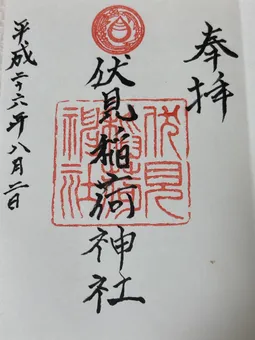 奉拝
伏見稲荷神社
伏見稲荷神社
平成二十六年八月二日